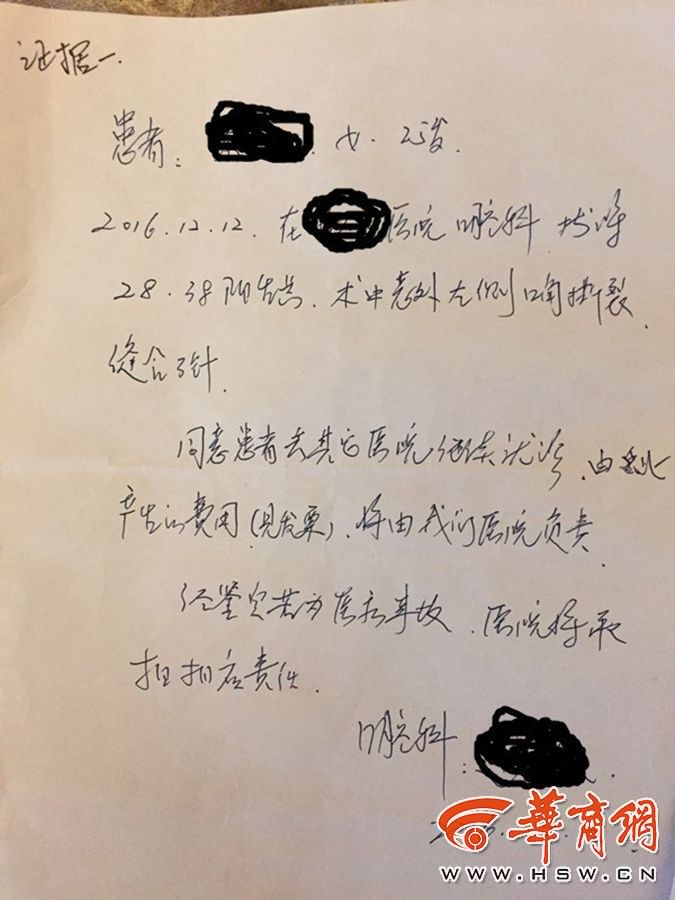 证据一.
患者: 女. 25岁.
2016.12.12. 在 医院 口腔科 拔除
28.38阻生齿. 术中意外左侧口角撕裂.
缝合3针.
同意患者去其它医院继续就诊, 由此
产生的费用(见发票), 将由我们医院负责.
经鉴定若为医疗事故, 医院将承
担相应责任.
口腔科:
華商網
WWW.HSW.CN